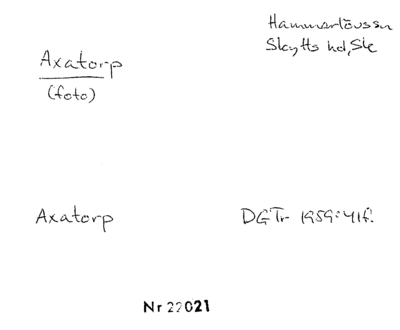 Axatorp
(foto)
Hammarlövssn
Skytts hd, Ske
Axatorp
DGTr 1959:41f.
Nr 22021